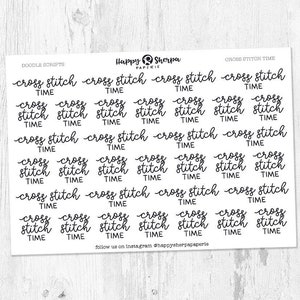 DOODLE SCRIPTS Happy Sherpa CROSS STITCH TIME
PAPERIE
cross stitch cross stitch cross stitch cross stitch
TIME TIME TIME TIME
cross cross cross cross cross cross cross
stitch stitch stitch stitch stitch stitch stitch
TIME TIME TIME TIME TIME TIME TIME
cross stitch cross stitch cross stitch cross stitch
TIME TIME TIME TIME
cross cross cross cross cross cross cross
stitch stitch stitch stitch stitch stitch stitch
TIME TIME TIME TIME TIME TIME TIME
cross stitch cross stitch cross stitch cross stitch
TIME TIME TIME TIME
cross cross cross cross cross cross cross
stitch stitch stitch stitch stitch stitch stitch
TIME TIME TIME TIME TIME TIME TIME
follow us on instagram @happysherpapaperie